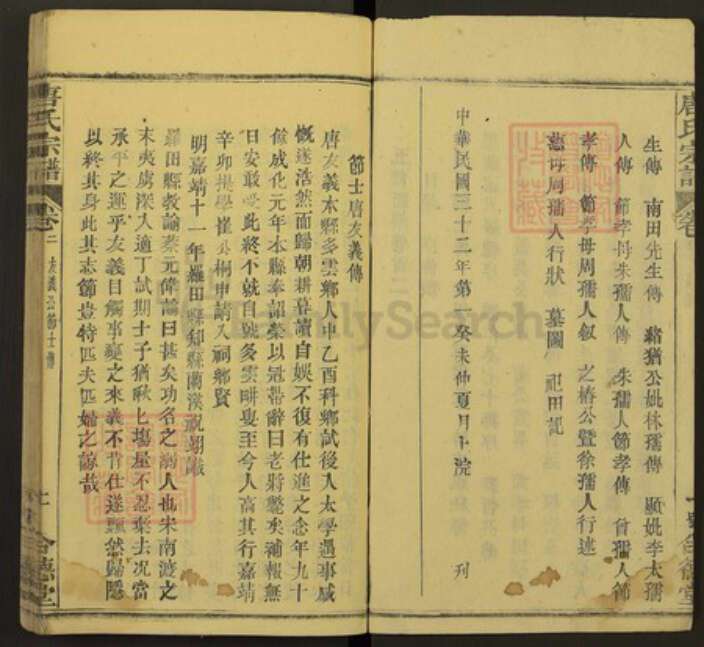 唐氏宗譜 卷
生傳 南田先生傳 猶公妣林孺傳 顯妣李太孺
人傳 節孝母朱孺人傳 朱孺人節孝傳 曾孺人節
孝傳 節孝母周孺人叙 之椿公暨徐孺人行述
慈母周孺人行狀 墓圖 祀田記
中華民國三十二年 癸未仲夏月上浣 刊
節士唐友義傳
唐友義本縣多雲鄉人中乙酉科鄉試後入太學遇事感
慨遂浩然而歸朝耕暮讀自娛不復有仕進之念年九十
餘成化元年本縣奉詔榮以冠帶辭曰老將斃矣補報無
日安敢受此終不就自號多雲畊叟至今人高其行嘉靖
辛卯提學崔公桐申請入祠鄉賢
明嘉靖十一年羅田縣知縣蘭溪祝翊識
羅田縣教諭蔡元偉論曰甚矣功名之溺人也宋南渡之
末夷虜深入適丁試期士子猶秋七場屋不忍棄去况當
承平之運乎友義目觸事變之來義不苟仕遂飄然歸隱
以終其身此其志節豈特匹夫匹婦之諒哉
唐氏宗譜 卷二 友義公節士傳
FamilySearch